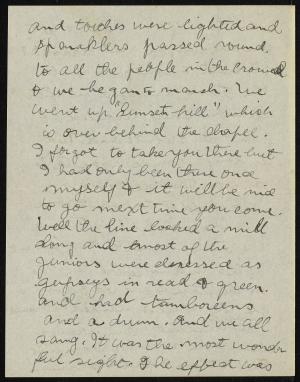 and torches were lighted and
sparaklers passed round.
to all the people in the crowd
& we began to march. We
went up "Sunset hill" which
is over behind the chapel.
I forgot to take you there but
I had only been there once
myself & it will be nice
to go next time you come.
Well the line looked a mill
long and most of the
juniors were deressed as
gypseys in read & green.
and had tamboreens
and a drum. And we all
sang. It was the most wonder
ful sight. The effect was